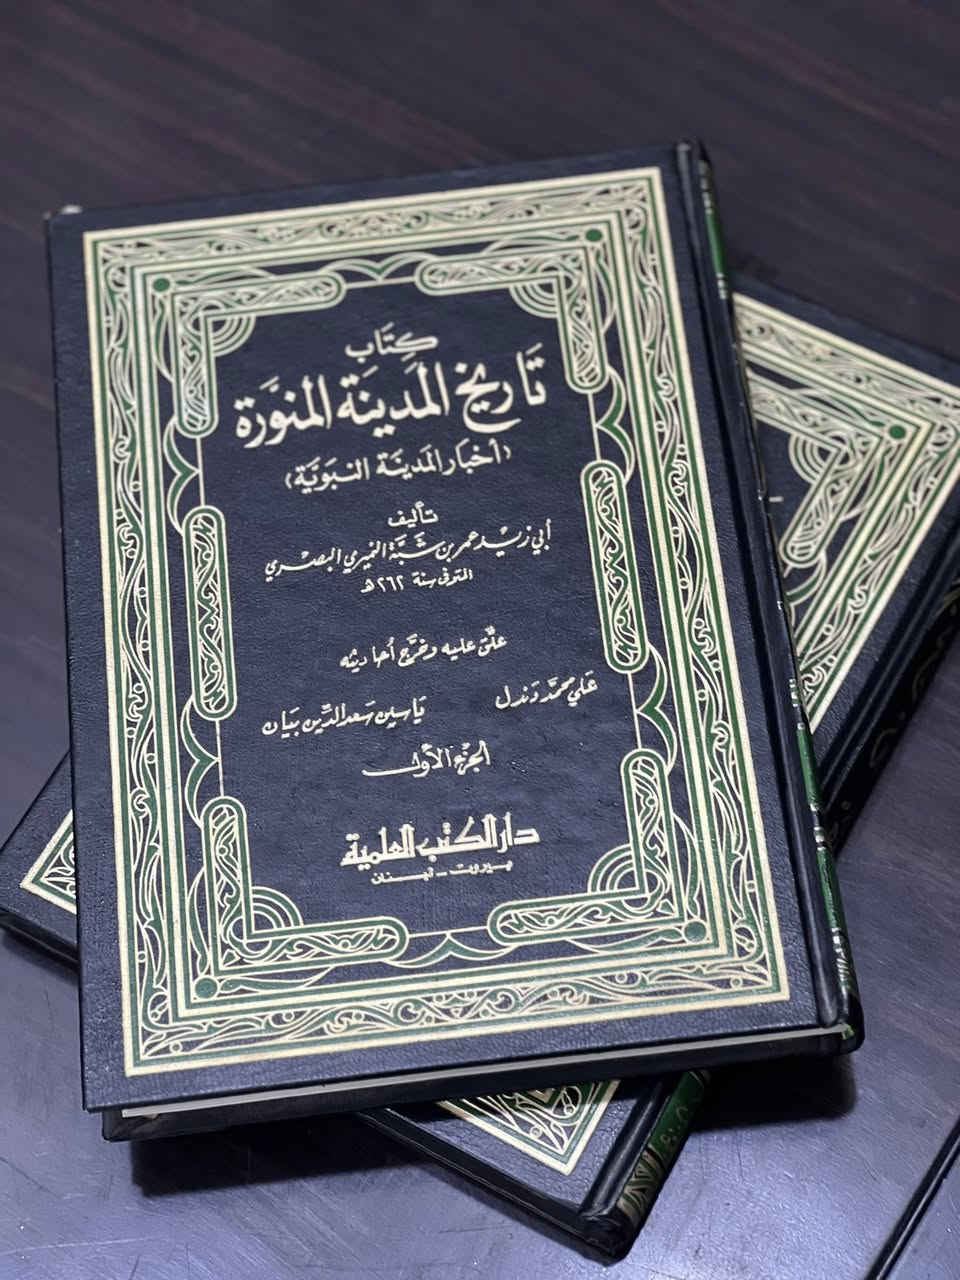 كِتَاب
تَاريخ المَدينَة المنوَّرة
(أخبار المَدينَة النبَويَّة)
تأليف
أبي زيد عمر بن شَبَّة النميري البصري
المتوفى سنة ٢٦٢ هـ
علّق عليه وخرّج أحاديثه
عَلي محمّد دَندل
يَاسين سَعد الدِّين بَيَان
الجزء الأول
دار الكتب العلمية
بيروت - لبنان